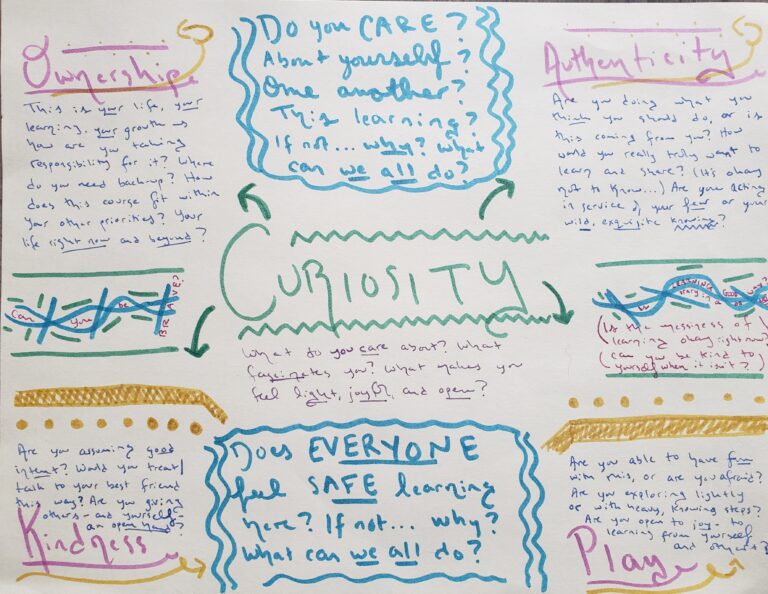 Ownership
This is your life, your
learning, your growth so
how are you taking
responsibility for it? Where
do you need backup? How
does this course fit within
your other priorities? Your
life right now and beyond?
Do you CARE?
About yourself?
One another?
This learning?
If not... why? What
can we all do?
Authenticity
Are you doing what you
think you should do, or is
this coming from you? How
would you really truly want to
learn and share? (It's okay
not to know...) Are you acting
in service of your fear or your
wild, exquisite knowing?
CURIOSITY
What do you care about? What
fascinates you? What makes you
feel light, joyful, and open?
Can you be BRAVE?
(Is the messiness of
learning okay right now?)
(Can you be kind to
yourself when it isn't?)
Are you assuming good
intent? Would you treat/
talk to your best friend
this way? Are you giving
others - and yourself -
an open hand?
Kindness
Does EVERYONE
feel SAFE learning
here? If not... why?
What can we all do?
Are you able to have fun
with this, or are you afraid?
Are you exploring lightly
or with heavy, knowing steps?
Are you open to joy - to
learning from yourself
and others?
Play